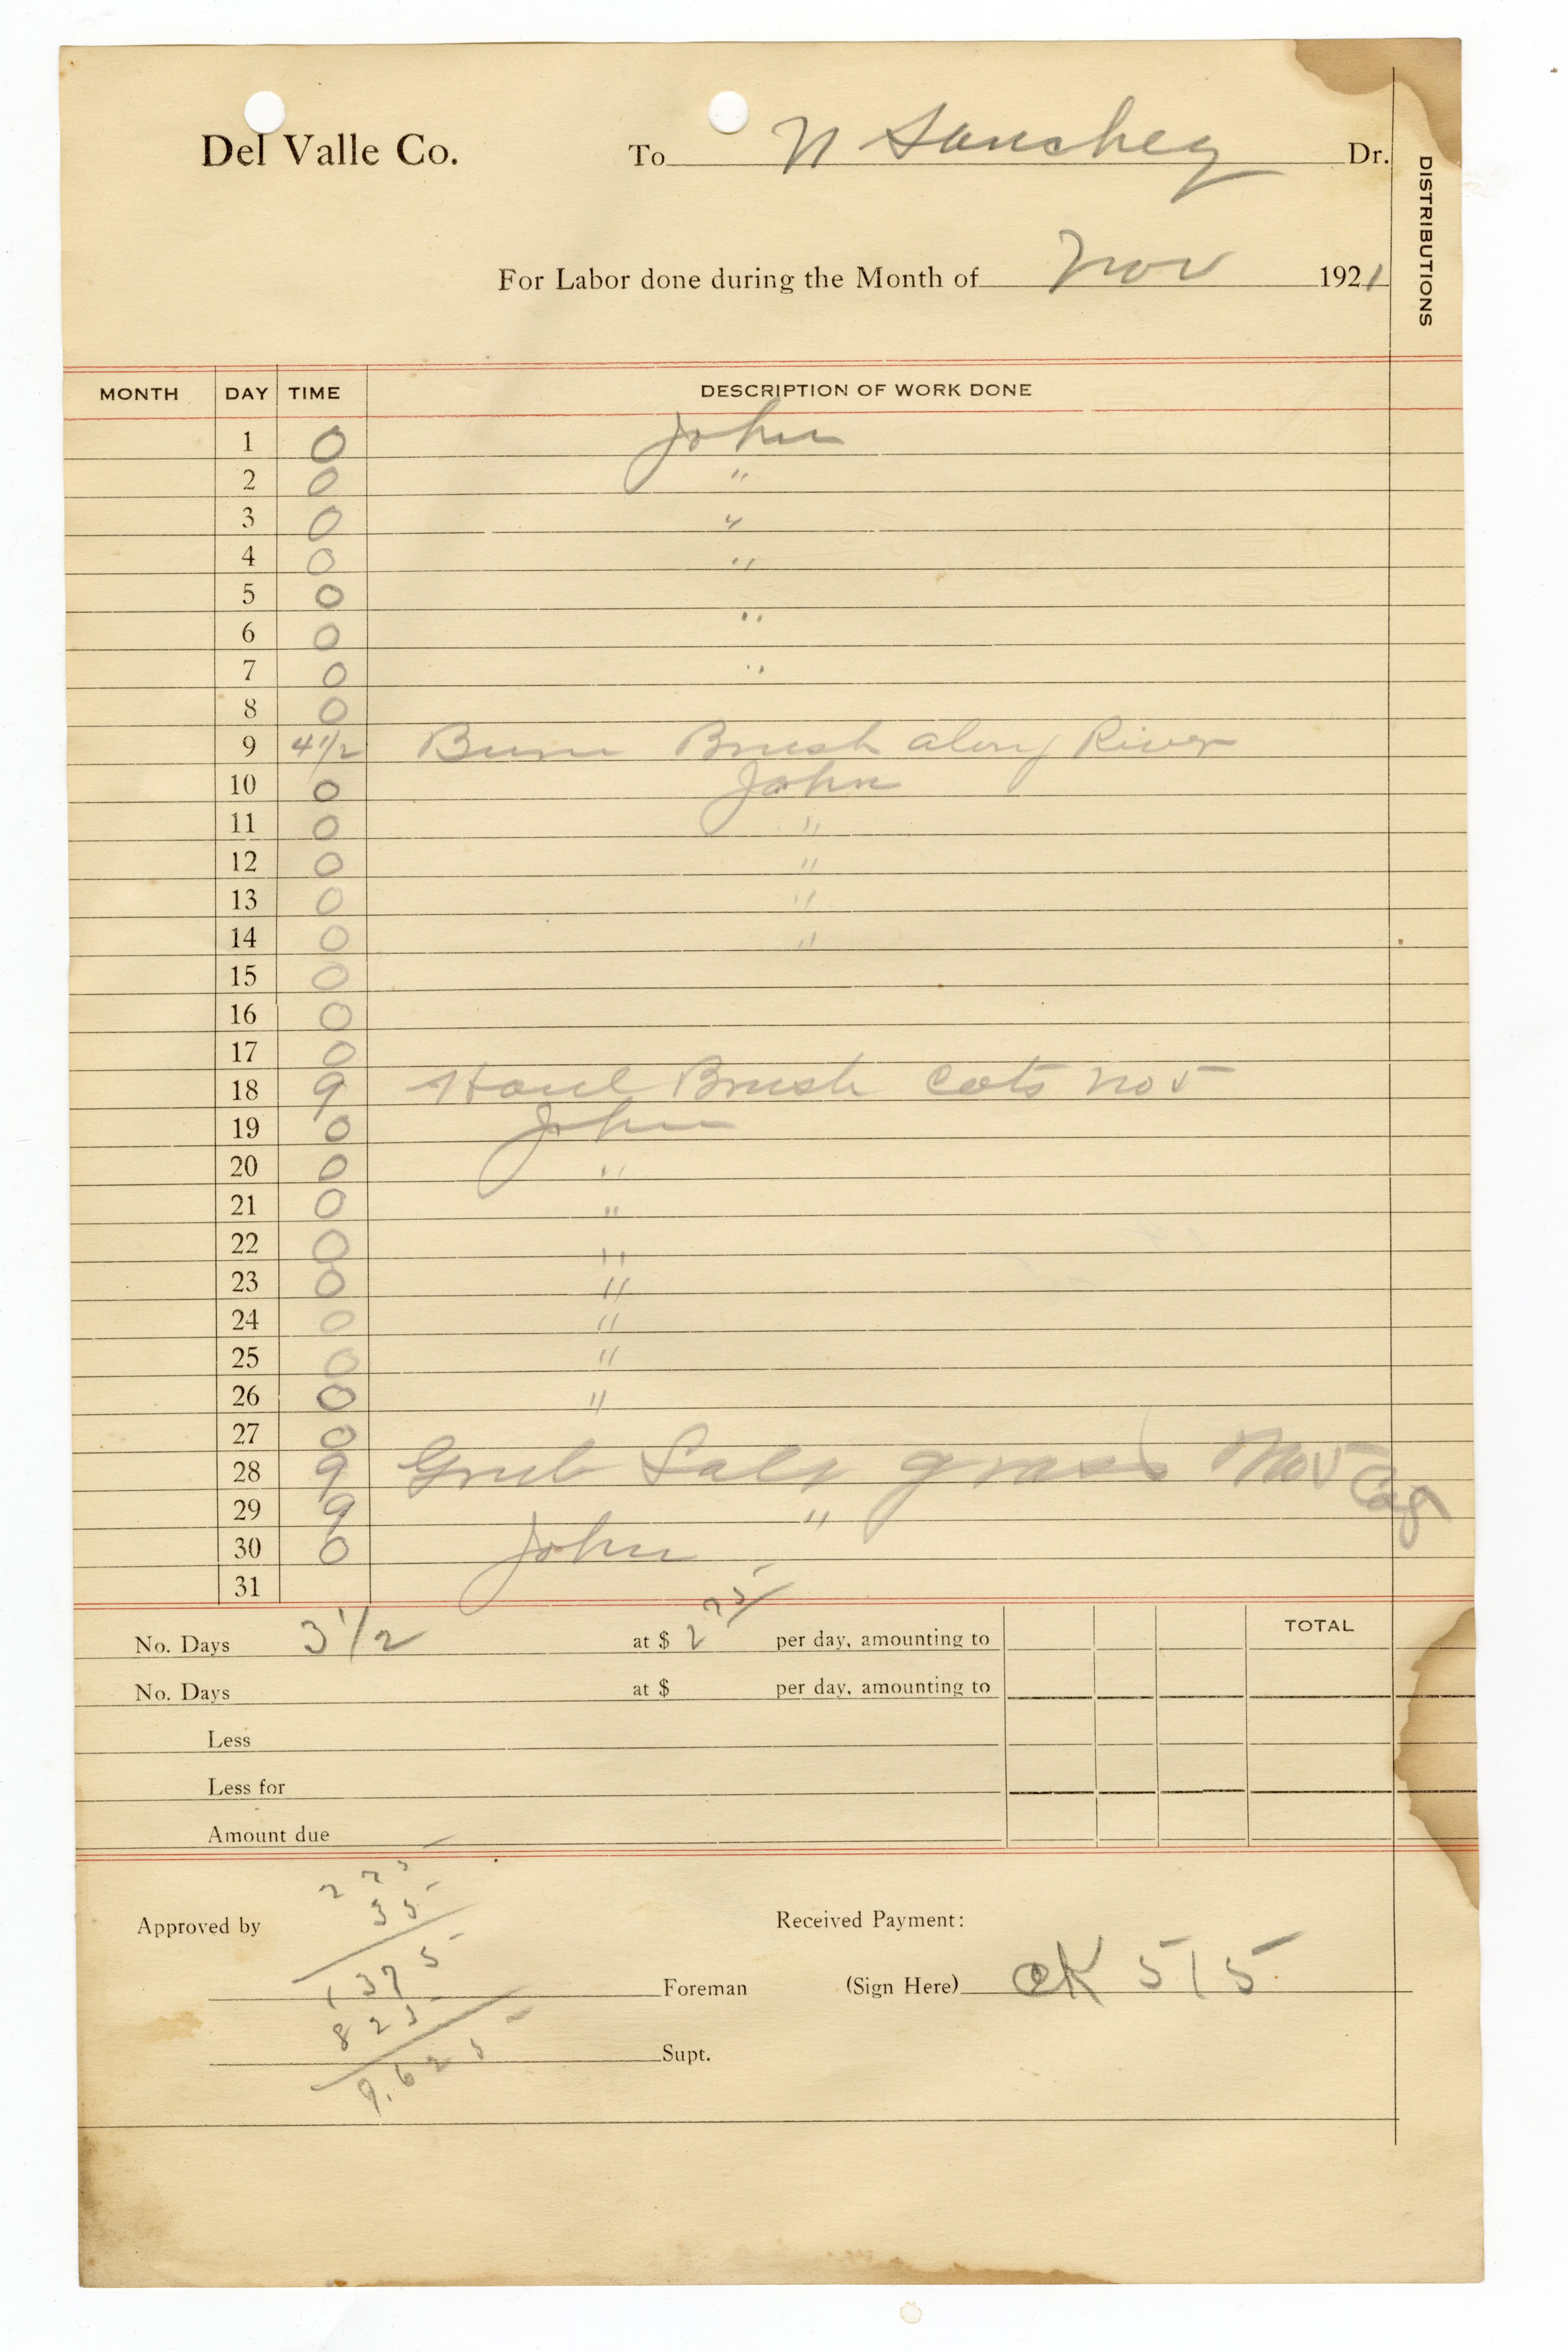 Del Valle Co. To N Sanchez Dr.
DISTRIBUTIONS
For Labor done during the Month of Nov 1921
MONTH DAY TIME DESCRIPTION OF WORK DONE
1 0 John
2 0 "
3 0 "
4 0 "
5 0 "
6 0 "
7 0 "
8 0
9 4 1/2 Burn Brush along River
10 0 John
11 0 "
12 0 "
13 0 "
14 0 "
15 0
16 0
17 0
18 9 Haul Brush Cots No 5
19 0 John
20 0 "
21 0 "
22 0 "
23 0 "
24 0 "
25 0 "
26 0 "
27 0
28 9 Grub Salt grass No 5
29 9 "
30 0 John
31
No. Days 3 1/2 at $ 2 75 per day, amounting to TOTAL
No. Days at $ per day, amounting to
Less
Less for
Amount due
2 75
3 5
Approved by Received Payment:
1 37 5
Foreman (Sign Here) CK 515
8 25
Supt.
9.625